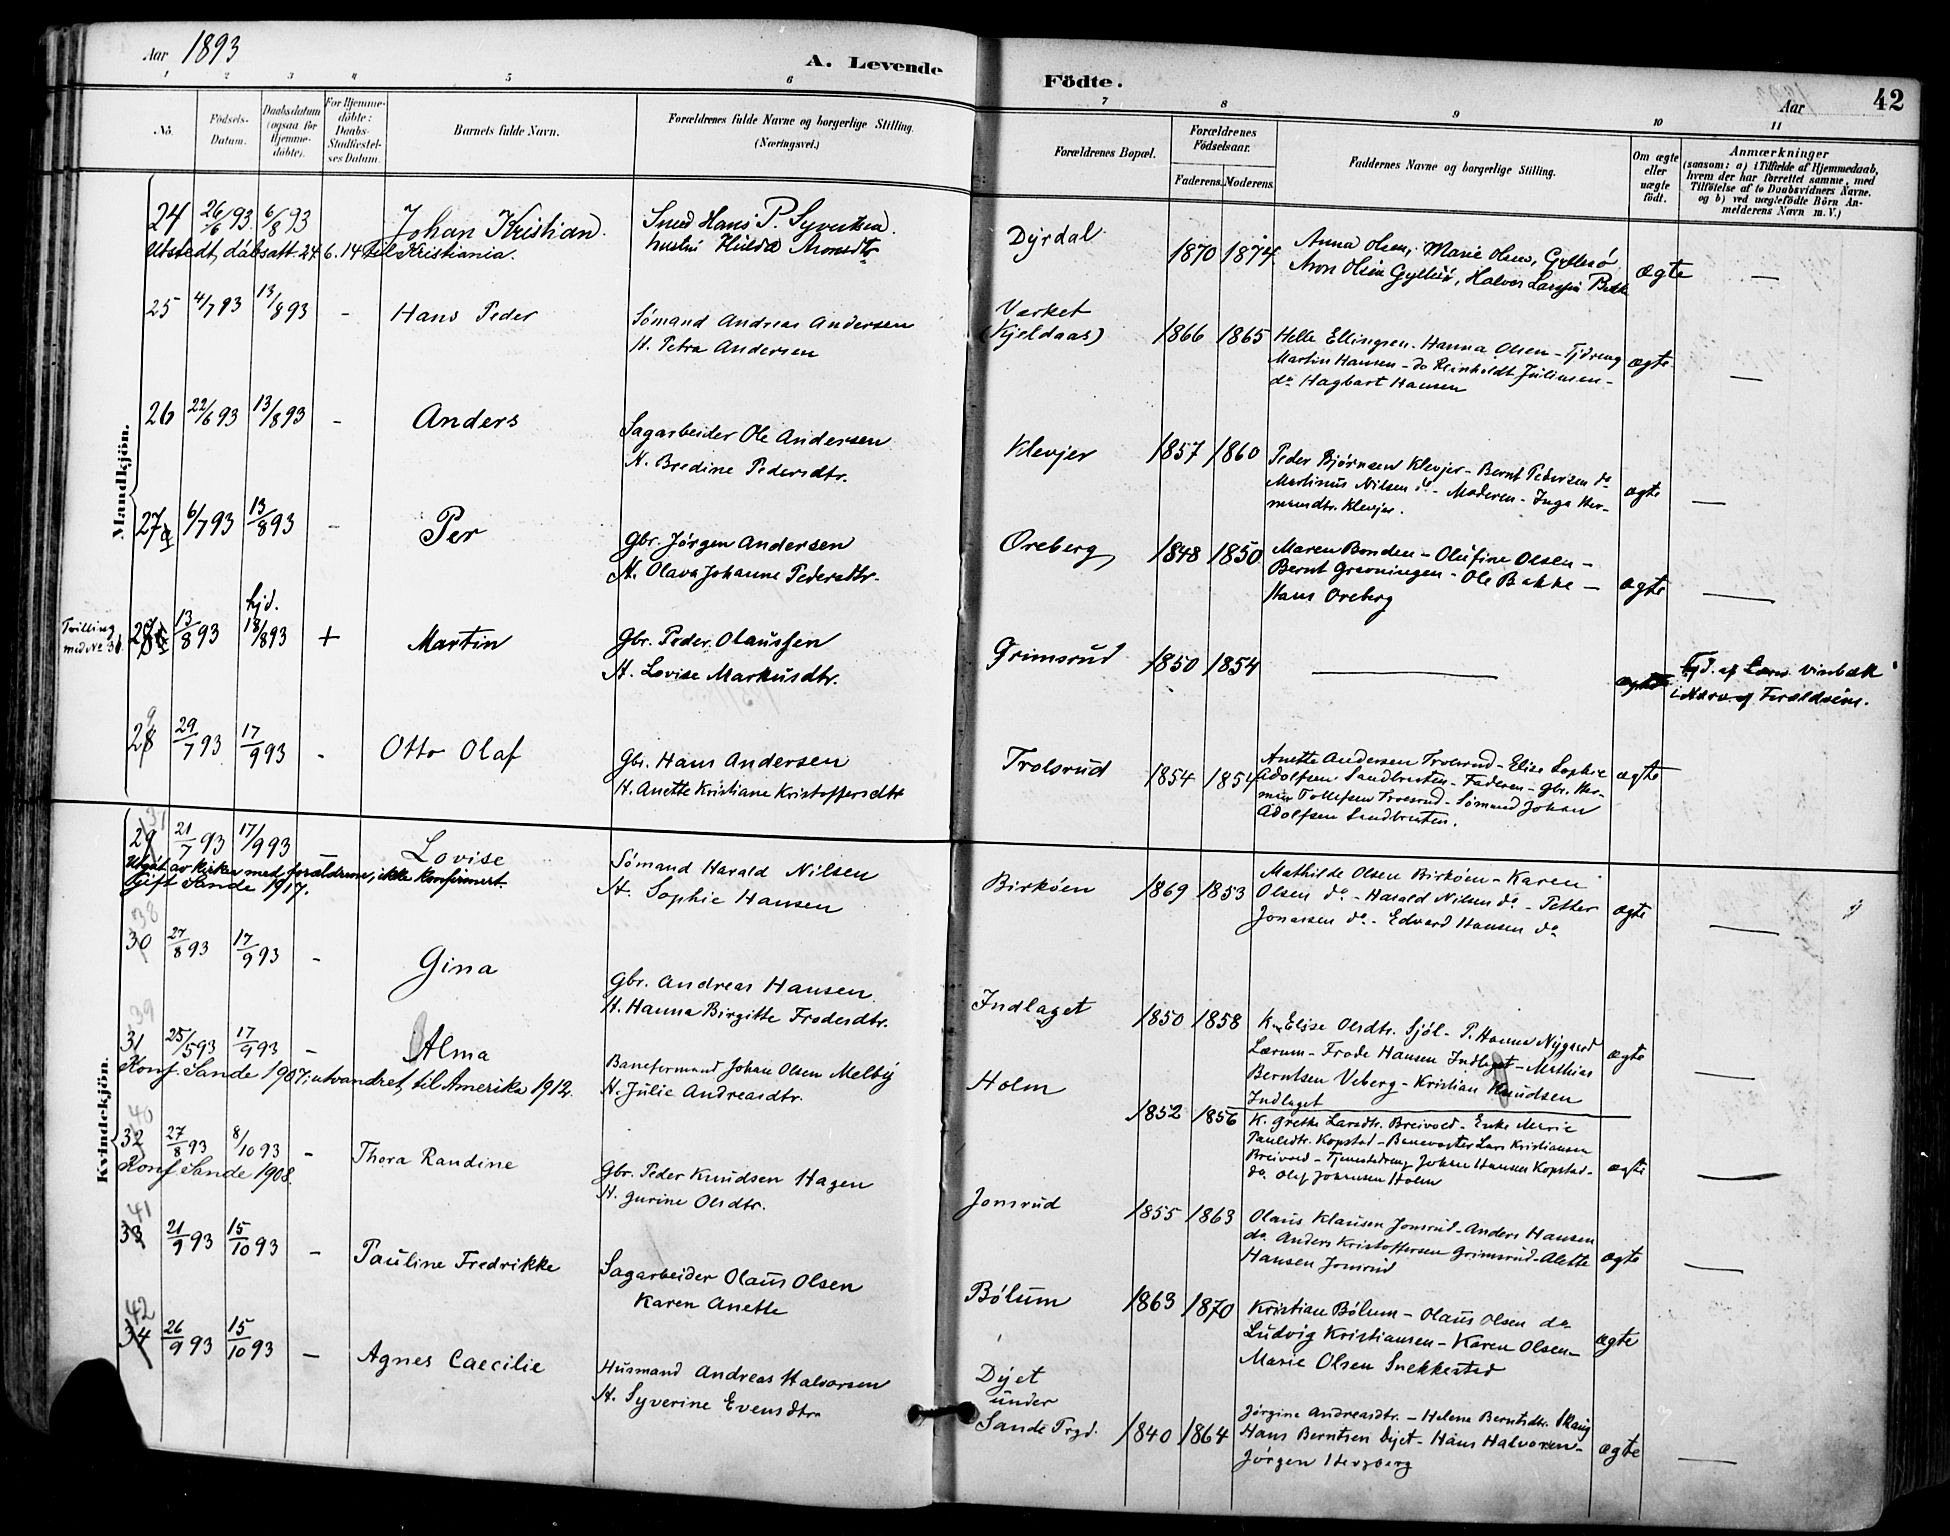 Aar 1893
A. Levende Födte.
Aar
42
1 2 3 4 5 6 7 8 9 10 11
No.
Födsels-Datum.
Daabsdatum (ogsaa for Hjemme-döbte).
For Hjemme-döbte: Daabs-Stadfæstel-ses Datum.
Barnets fulde Navn.
Forældrenes fulde Navne og borgerlige Stilling. (Næringsvei.)
Forældrenes Bopæl.
Forældrenes Födselsaar.
Faderens. Moderens.
Faddernes Navne og borgerlige Stilling.
Om ægte eller uægte födt.
Anmærkninger
(saasom: a) i Tilfælde af Hjemmedaab,
hvem der har forrettet samme, med
Tilföielse af to Daabsvidners Navne.
og b) ved uægtefödte Börn An-
melderens Navn m. V.)
Mandkjön.
24 26/6 93 6/8 93 Johan Kristian. Smed Hans P. Syvertsen. Dyrdal 1870 1874 Anna Olsen, Marie Olsen, Gyltesø
Utstedt dåbsatt. 24 6. 14 til Kristiania. hustru Hulda Aronsdtr Aron Olsen Gyltesø, Halvor Larsen Bakke ægte —
25 4/7 93 13/8 93 - Hans Peder Sömand Andreas Andersen Værket 1866 1865 Helle Ellingsen - Hanna Olsen - Tjdreng
H. Petra Andersen (Kjeldaas) Martin Hansen - do Reinholdt Juliusen - ægte —
do Hagbart Hansen
26 22/6 93 13/8 93 - Anders Sagarbeider Ole Andersen Klevjer 1857 1860 Peder Bjørnsen Klevjer - Bernt Pedersen do
H. Bredine Pedersdtr. Martinus Nilsen do - Moderen - Inga Her- ægte —
mansdtr. Klevjer.
27 6/7 93 13/8 93 - Per Gbr. Jørgen Andersen Oreberg 1848 1850 Maren Bonden - Olufine Olsen -
H. Olava Johanne Pedersdtr. Bernt Grevningen - Ole Bakke - ægte —
Hans Oreberg
Tvilling med No 36 13/8 93 hjd. 13/8 93 + Martin Gbr. Peder Olaussen Grimsrud 1850 1854 — ægte hjd. af Lærer Vinbæk
H. Lovise Markusdtr. i Nærv. af Forældrene.
28 9 29/7 93 17/9 93 - Otto Olaf Gbr. Hans Andersen Trolsrud 1854 1854 Anette Andersen Trolsrud - Elise Sophie
H. Anette Kristiane Kristoffersdtr Adolfsen Sandbruten - Faderen - gbr. Her- ægte
man Tollefsen Trolsrud - Sömand Johan
Adolfsen Sandbruten.
Kvindekjön.
37 29 21/7 93 17/9 93 — Lovise Sömand Harald Nilsen Birköen 1869 1853 Mathilde Olsen Birköen - Karen
Utgåt av kirken med forældrene, ikke konfirmert. H. Sophie Hansen Olsen do - Harald Nilsen do - Petter ægte —
Gift Sande 1917. Jonassen do - Edvard Hansen do
38 30 27/8 93 17/9 93 - Gina Gbr. Andreas Hansen Indlaget 1850 1858 K. Elise Olsdtr. Sjöl - P. Hanna Nygaard
H. Hanna Birgitte Frodesdtr. Lærum - Frode Hansen Indlaget - Mathias ægte —
Berntsen Veberg - Kristian Knudsen
Indlaget
39 31 25/5 93 17/9 93 - Alma Baneformand Johan Olsen Melby Holm 1852 1856 K. Grethe Larsdtr. Breivold - Enke Marie
Konf. Sande 1907, utvandret til Amerika 1912. H. Julie Andreasdtr. Paulsdtr. Kopstad - Banevogter Lars Kristiansen
Breivold - Tjenestedreng Johan Hansen Kopstad - ægte —
do Olaf Johansen Holm
40 32 27/8 93 8/10 93 - Thora Randine Gbr. Peder Knudsen Hagen Jonsrud 1855 1863 Olaus Klausen Jonsrud - Anders Hansen
Konf. Sande 1908. H. Gurine Olsdtr. do Anders Kristoffersen Grimsrud - Alette ægte —
Hansen Jonsrud
41 33 21/9 93 15/10 93 - Pauline Fredrikke Sagarbeider Olaus Olsen Bölum 1863 1870 Kristian Bölum - Olaus Olsen do
Karen Anette Ludvig Kristiansen - Karen Olsen - ægte
Marie Olsen Snekkestad
42 34 26/9 93 15/10 93 - Agnes Caecilie Husmand Andreas Halvorsen Dyet under Sande Prgd. 1840 1864 Jørgine Andreasdtr. - Helene Berntsdtr. Skaug
H. Syverine Evensdtr Hans Berntsen Dyet - Hans Halvorsen - ægte —
Jørgen Hergberg